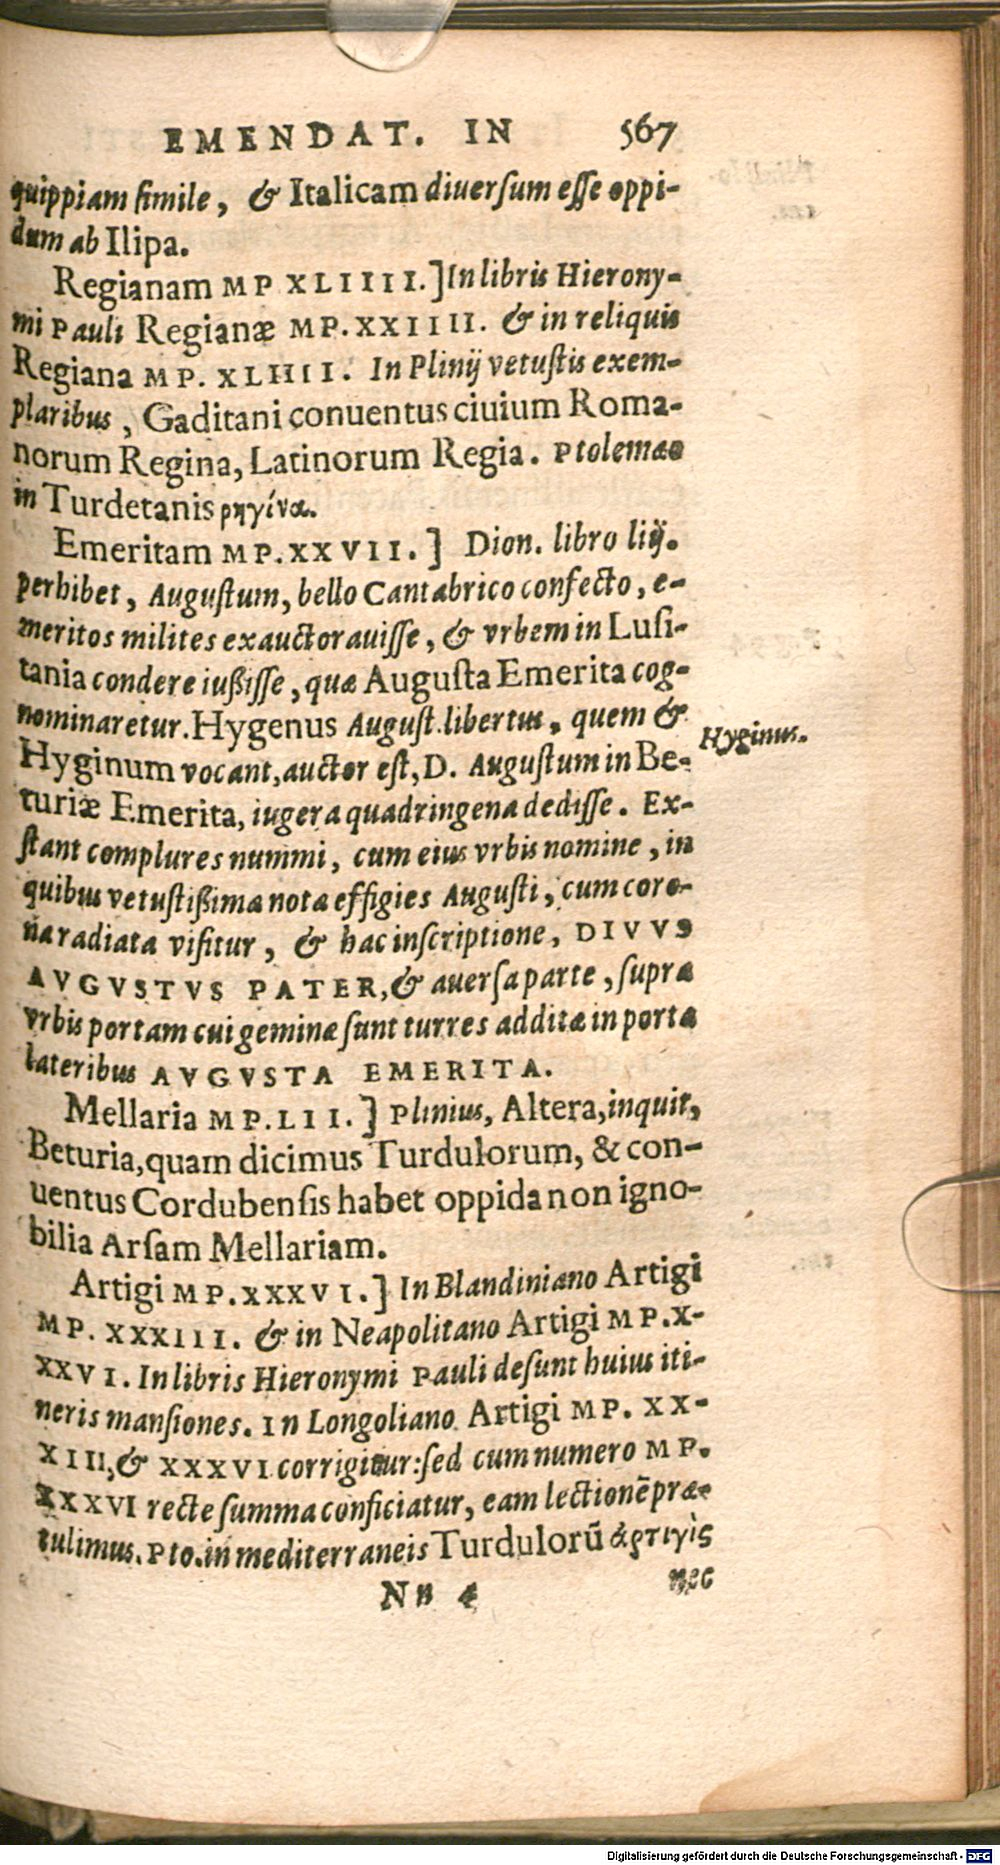 EMENDAT. IN 567
quippiam simile, & Italicam diuersum esse oppi-
dum ab Ilipa.
Regianam MP XLIIII.] In libris Hierony-
mi Pauli Regianæ MP. XXIIII. & in reliquis
Regiana MP. XLIIII. In Plinij vetustis exem-
plaribus, Gaditani conuentus ciuium Roma-
norum Regina, Latinorum Regia. Ptolemæo
in Turdetanis ρηγίνα.
Emeritam MP. XXVII.] Dion. libro liij.
perhibet, Augustum, bello Cantabrico confecto, e-
meritos milites exauctorauisse, & vrbem in Lusi-
tania condere iußisse, quæ Augusta Emerita cog-
nominaretur. Hygenus August. libertus, quem &
Hyginus.
Hyginum vocant, auctor est, D. Augustum in Be-
turiæ Emerita, iugera quadringena dedisse. Ex-
stant complures nummi, cum eius vrbis nomine, in
quibus vetustißima nota effigies Augusti, cum coro-
na radiata visitur, & hac inscriptione, DIVVS
AVGVSTVS PATER, & auersa parte, supra
vrbis portam cui geminæ sunt turres additæ in portæ
lateribus AVGVSTA EMERITA.
Mellaria MP. LII.] Plinius, Altera, inquit,
Beturia, quam dicimus Turdulorum, & con-
uentus Cordubensis habet oppida non igno-
bilia Arsam Mellariam.
Artigi MP. XXXVI.] In Blandiniano Artigi
MP. XXXIII. & in Neapolitano Artigi MP. X-
XXVI. In libris Hieronymi Pauli desunt huius iti-
neris mansiones. In Longoliano Artigi MP. XX-
XIII, & XXXVI corrigitur: sed cum numero MP.
XXXVI recte summa conficiatur, eam lectionē præ-
tulimus. Pto. in mediterraneis Turdulorū ἀρτιγὶς
Nn 4 nec
Digitalisierung gefördert durch die Deutsche Forschungsgemeinschaft - DFG